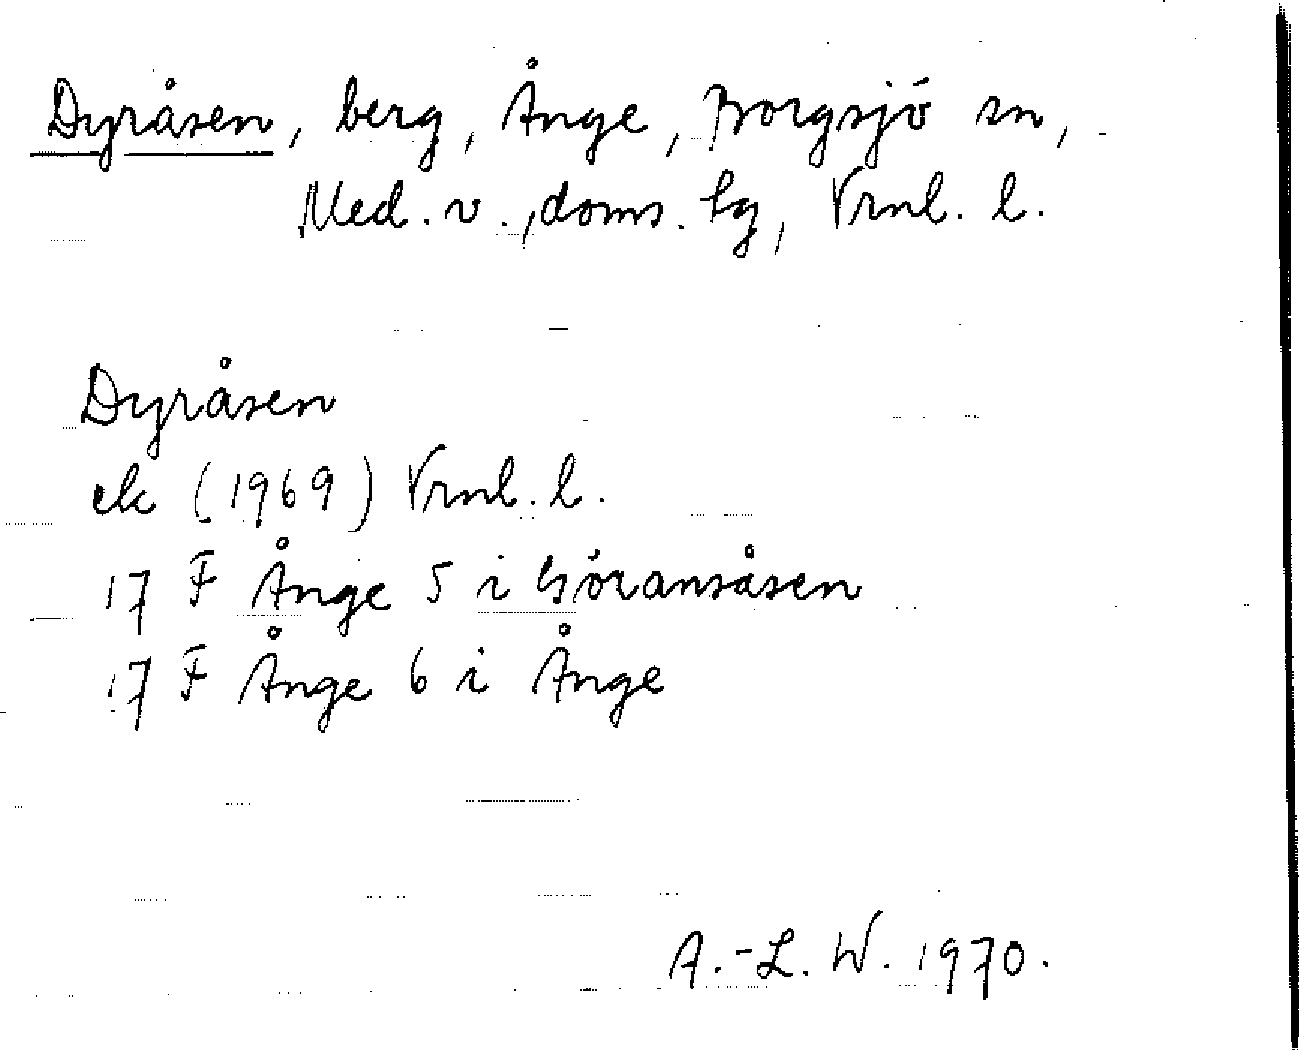 Dyråsen, berg, Ånge, Borgsjö sn,
Med. v., doms. hg, Vrnl. l.
Dyråsen
ek (1969) Vrnl. l.
17 F Ånge 5 i Göransåsen
17 F Ånge 6 i Ånge
A.-L. W. 1970.